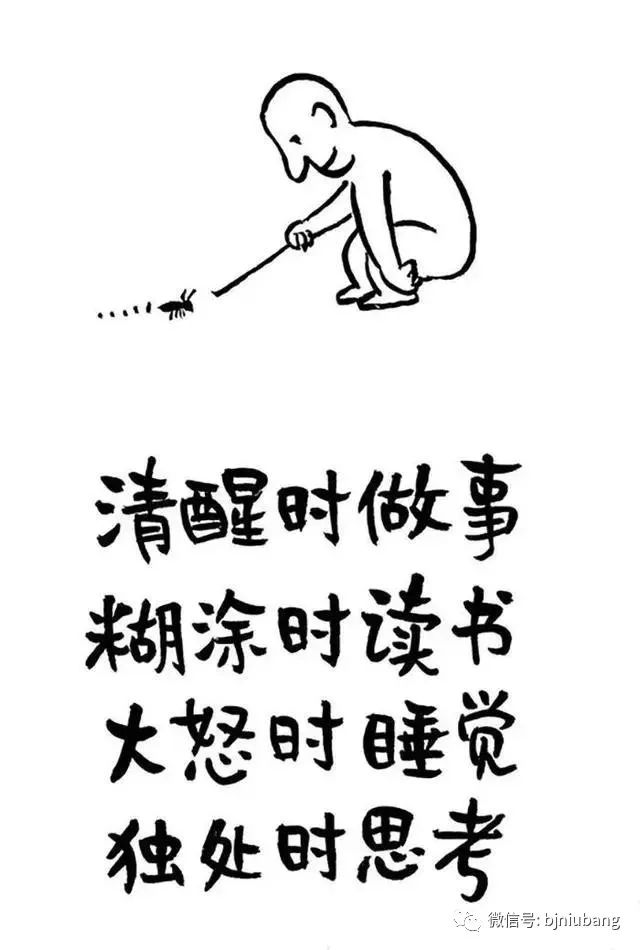 清醒时做事
糊涂时读书
大怒时睡觉
独处时思考
微信号: bjniubang